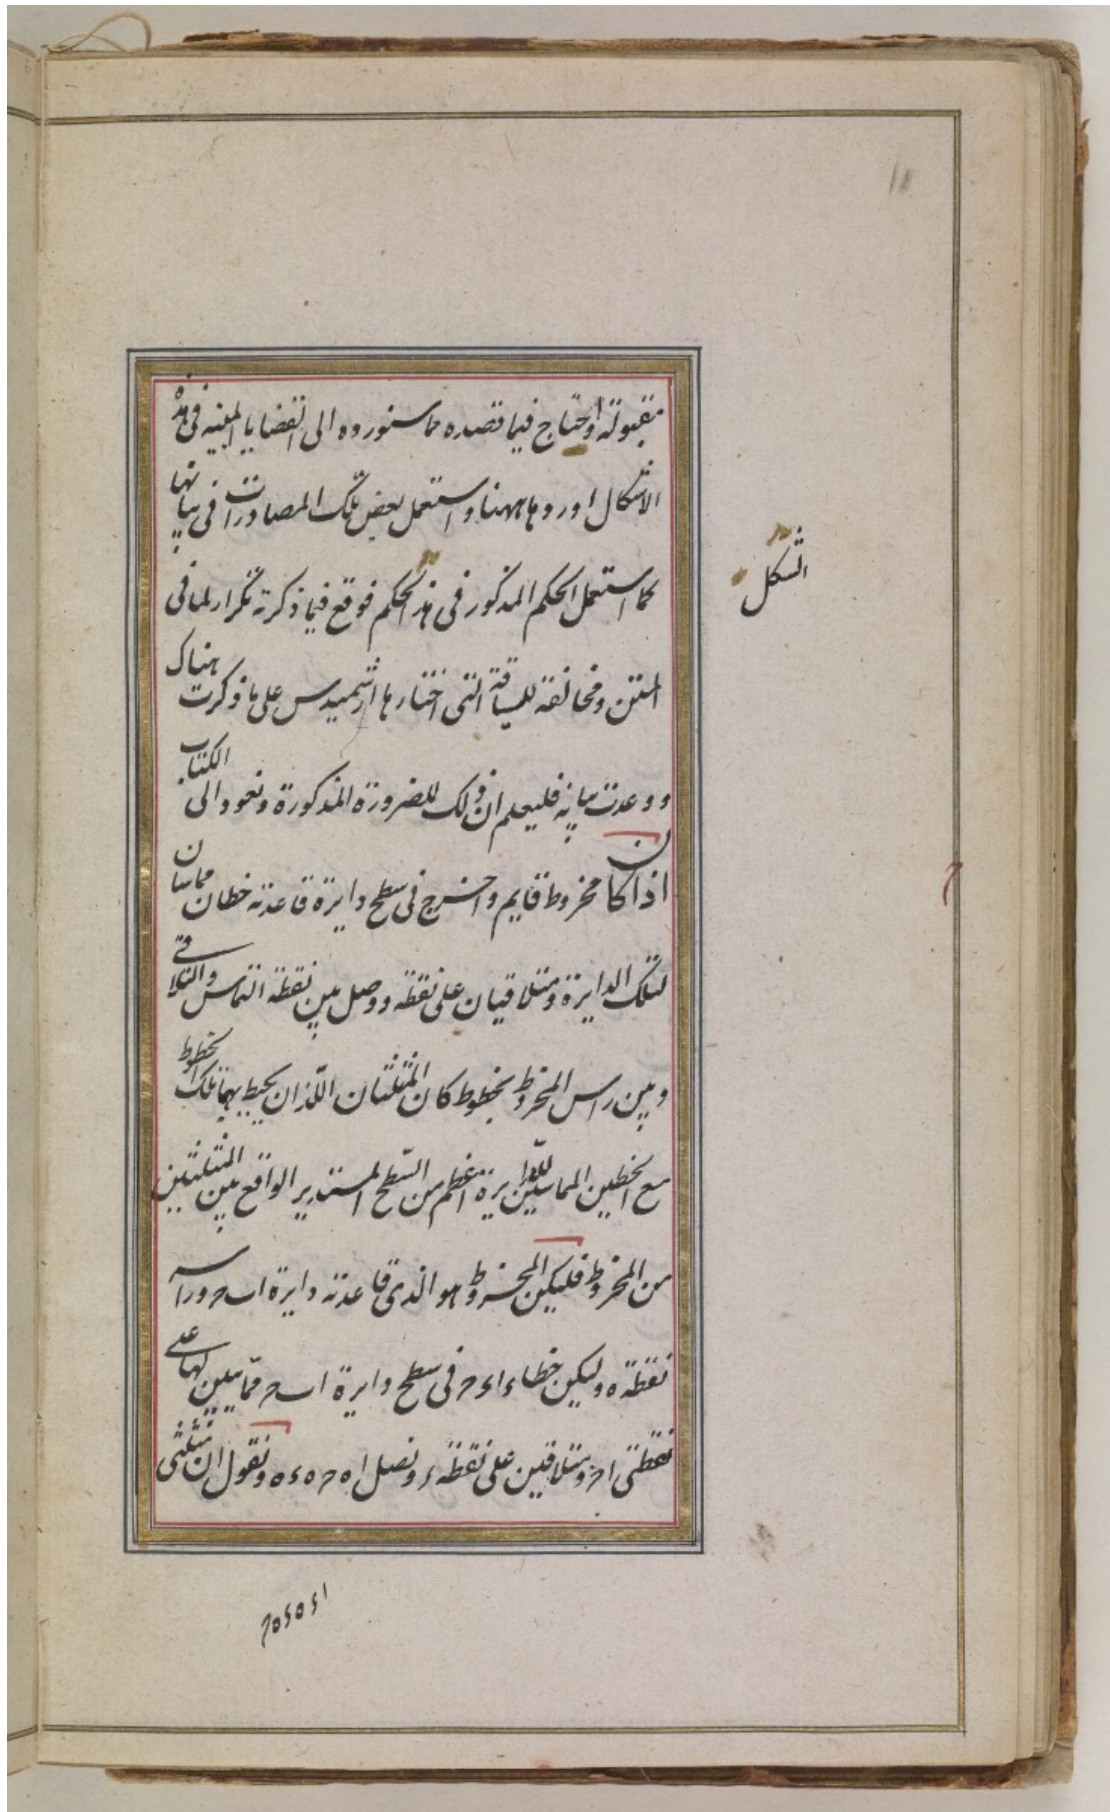 مقبولة واحتاج فيما قصده مما سنورده الى القضايا المبنيه فى هذه
الاشكال اوردها ههنا واستعمل بعض تلك المصادرات فى بيانها
الشكل
كما استعمل الحكم المذكور فى هذا الحكم فوقع فيما ذكرته تكرار لما فى
المتن ومخالفة للسياقة التى اختارها ارشميدس على ما ذكرت هناك
ووعدت بيانه فليعلم ان ذلك للضرورة المذكورة ونعود الى الكتاب
اذا كان مخروط قايم واخرج فى سطح دايرة قاعدته خطان مماسان
لتلك الدايرة ومتلاقيان على نقطة ووصل بين نقطة التماس والتلاقى
وبين راس المخروط بخطوط كان المثلثان اللذان يحيط بهما تلك الخطوط
مع الخطين المماسين للدايرة اعظم من السطح المستدير الواقع بين المثلثين
من المخروط فليكن المخروط هو الذى قاعدته دايرة ا ب ح وراسه
نقطة ه وليكن خطا ء ا ء ح فى سطح دايرة ا ب ح مماسين لها على
نقطتى ا ح ومتلاقيين على نقطة ء ونصل ا ه ح ه ء ه ونقول ان مثلثى